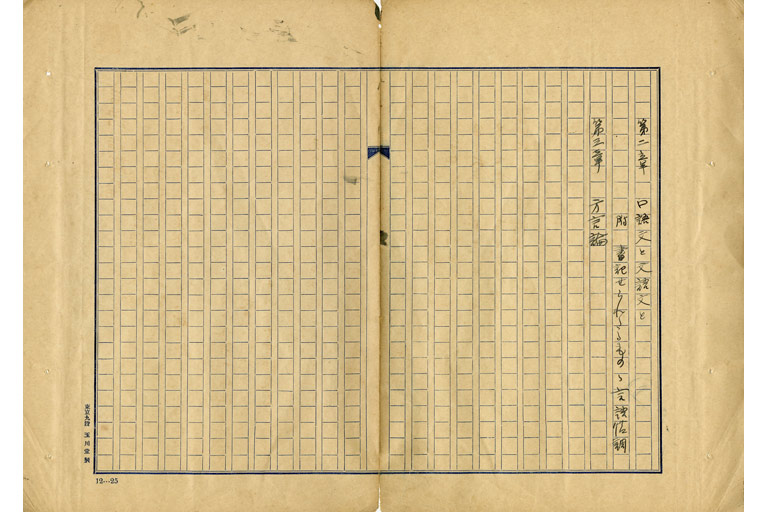 第二章 口語文と文語文と
附 書記せられたるものゝ言語
第三章 方言論
東京九段 玉川堂製
12…25